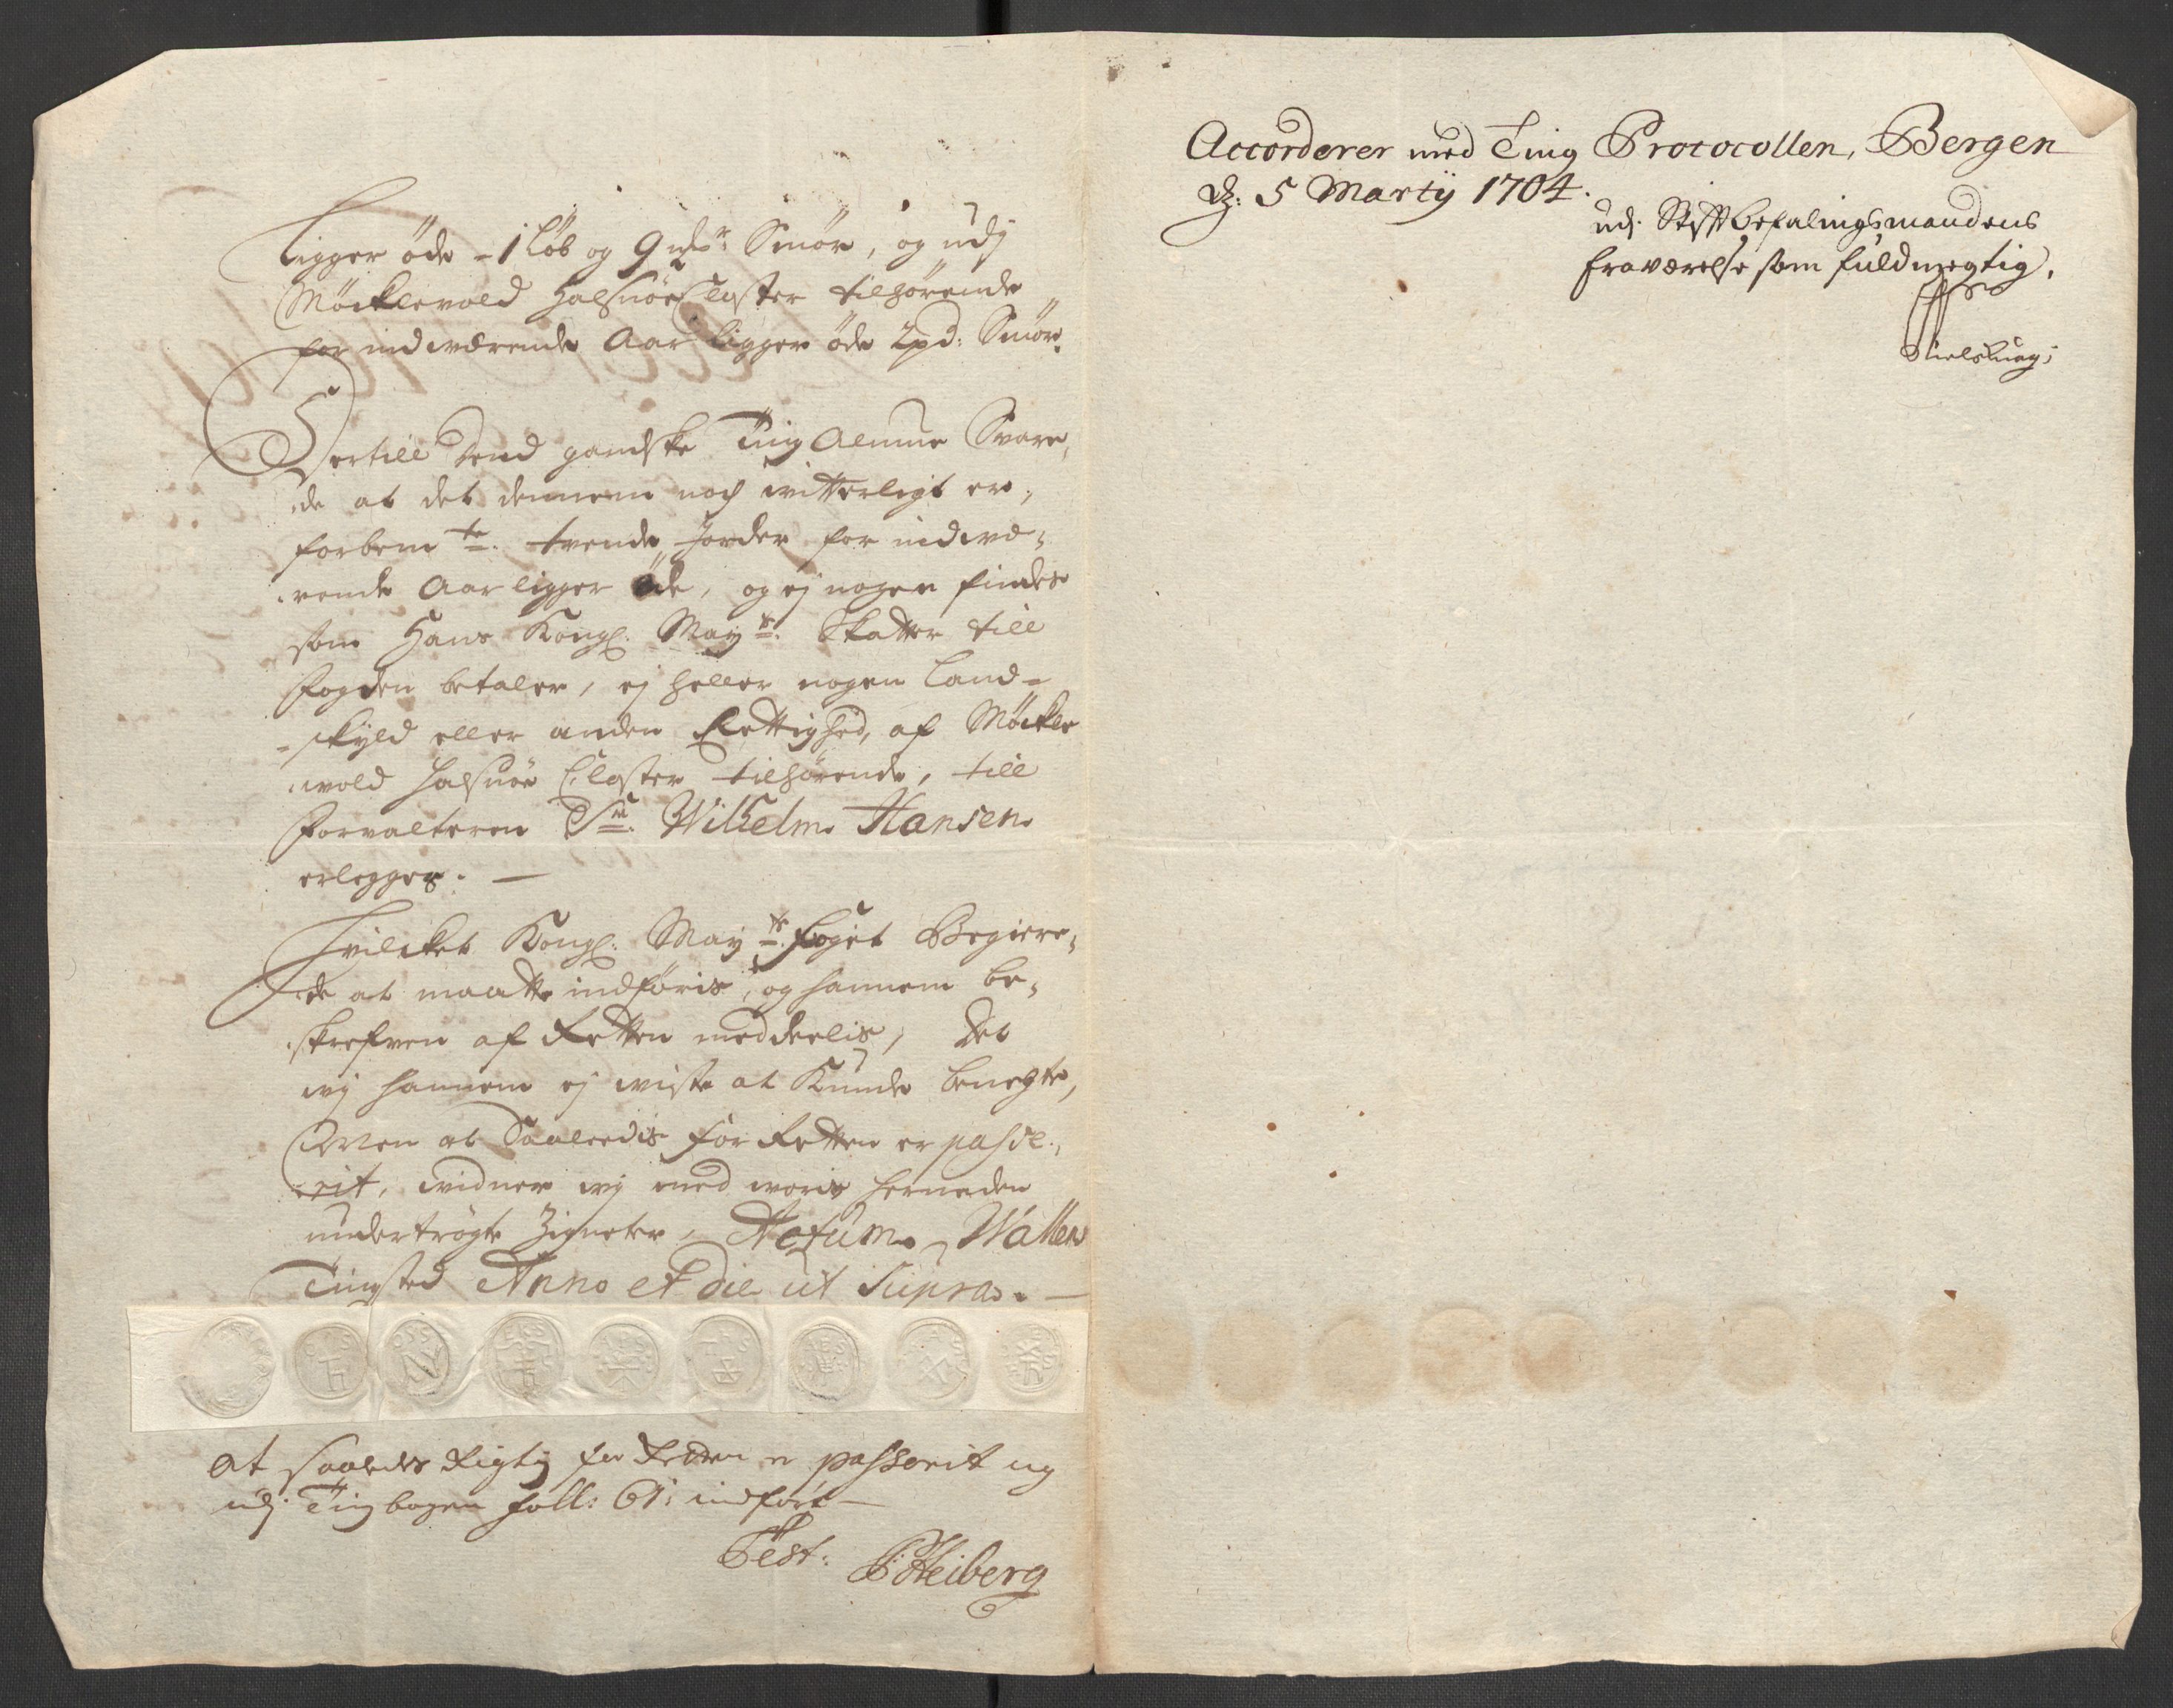 Ligger öde - 1 Löb og 9 Smör, og udj
Möcklevold Halsnöe Closter tilhörende
for indværende Aar ligger öde 2 pd: Smör.
Dertill dend gandske Ting Almue Svare,
de at det dennem nock witterligt er,
forbem.te tvende Jorder for indvæ,,
rende Aar ligger öde, og ej nogen findes
som Hans Kongl. May.ts Skatter till
fogden betaler, ej heller nogen Land-
-skyld eller anden Rettighed, af Möckle
wold Halsnöe Closter tilhörende, till
Forvalteren Sr. Wilhelm Hansen
erlegger. —
Hvilcket Kongl. May.ts foget Begiere,,
de at maatte indföris, og hannem be,,
skrefven af Retten meddeelis, Det
wj hannem ej wiste at Kunde benegte,
Men at Saaledis for Retten er passe,,
rit, widner wj med woris herneden
undertrögte Zigneter, Actum Wallers
Tingsted Anno et die ut Supra. —
At saaledes Rigtig for Retten er passerit og
udj Tingbogen foll: 61: indfört —
Test: Heiberg
Accorderer med Ting Protocollen, Bergen
d: 5 Martij 1704.
udj Stiftbefalingsmandens
fraværelse som fuldmegtig,